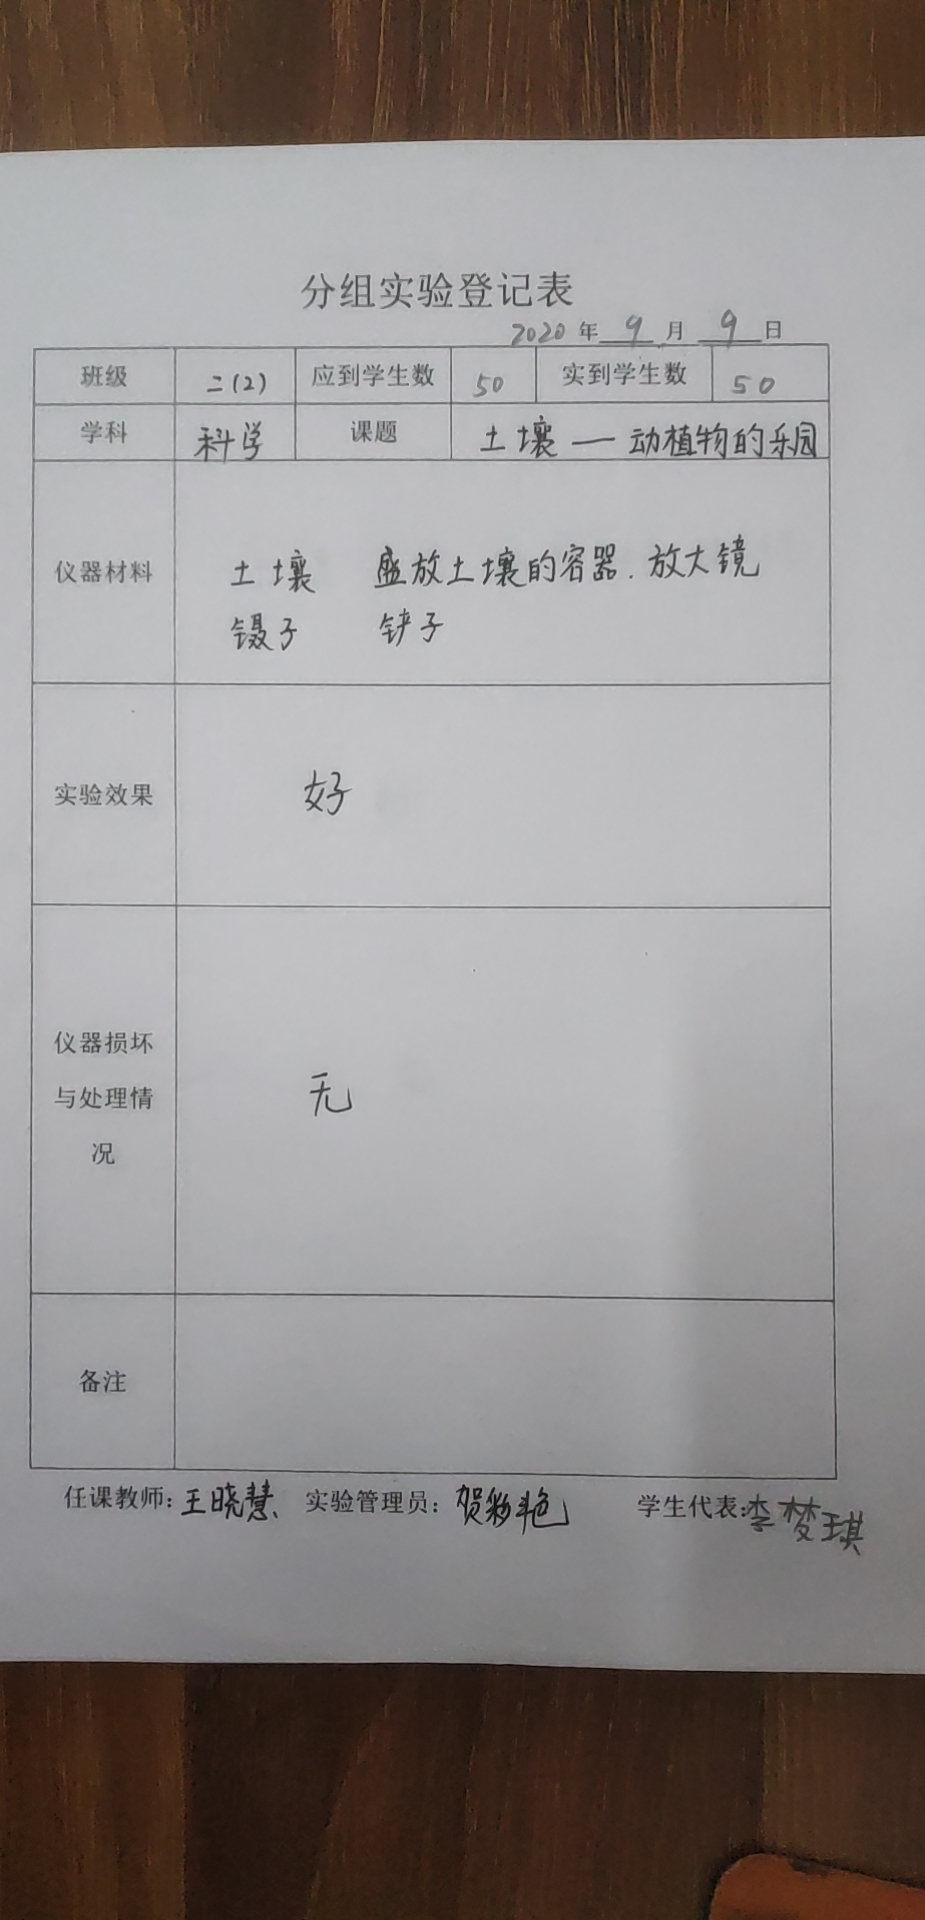 分组实验登记表
2020 年 9 月 9 日
班级 二(2) 应到学生数 50 实到学生数 50
学科 科学 课题 土壤一动植物的乐园
仪器材料
土壤 盛放土壤的容器.放大镜
镊子 铲子
实验效果 好
仪器损坏
与处理情
况
无
备注
任课教师:王晓慧 实验管理员:贺 学生代表:李梦琪